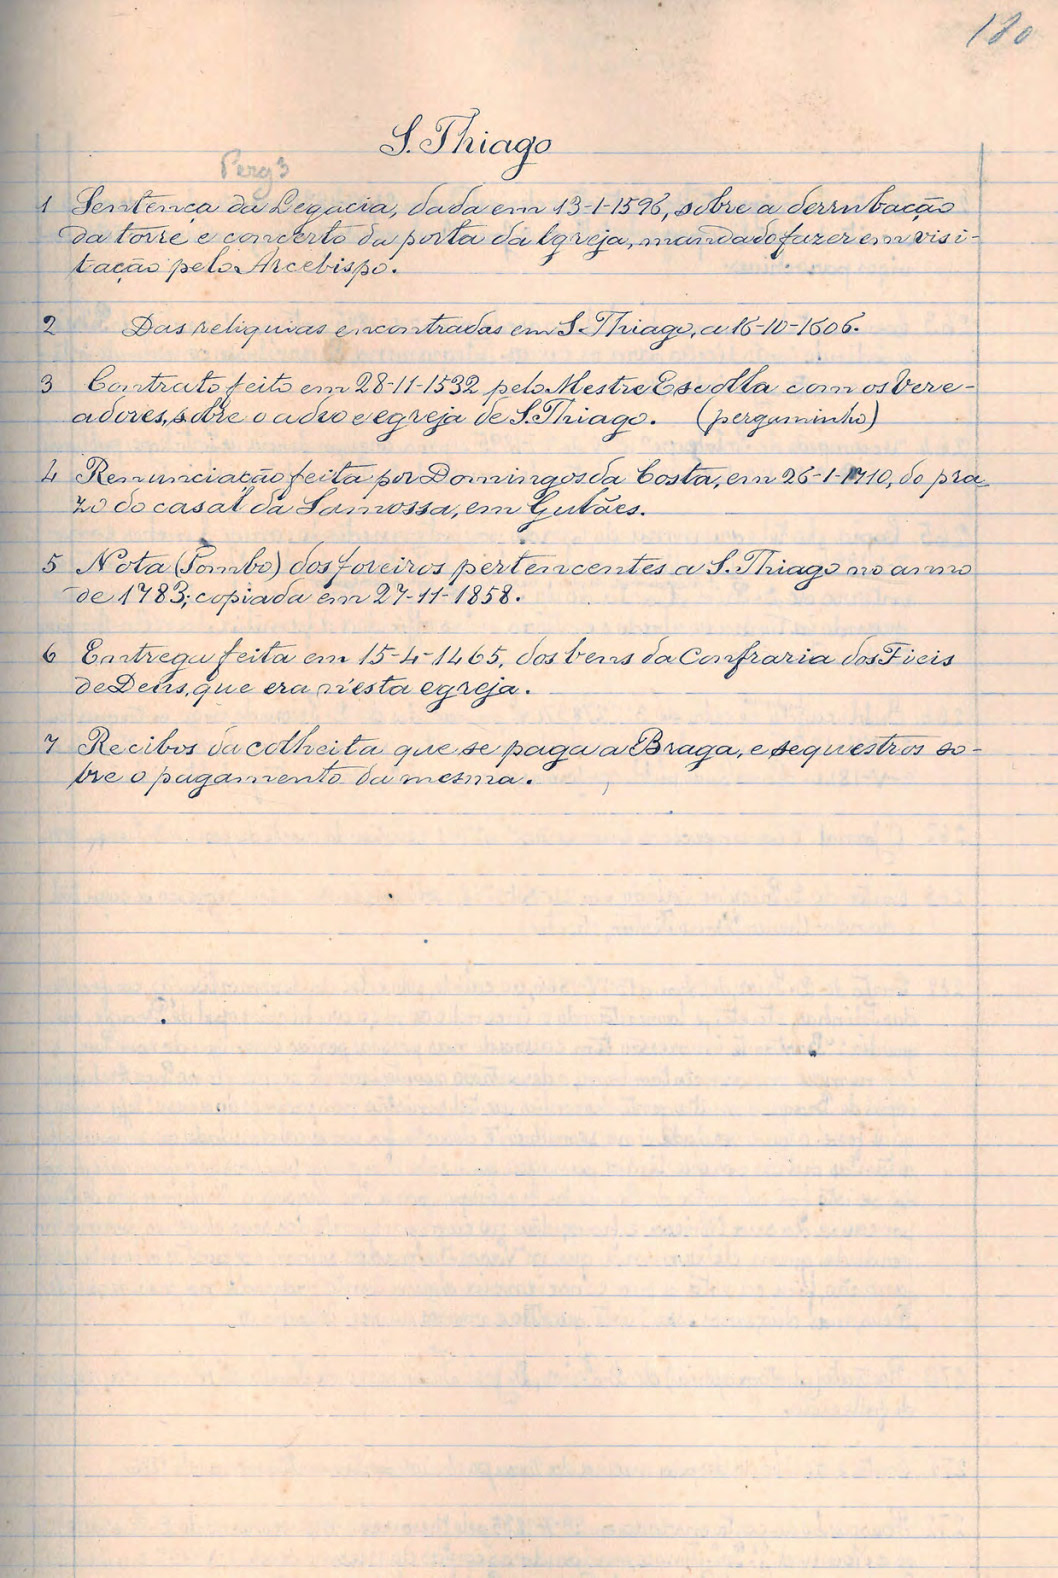 180
S. Thiago
Perg 3
1 Sentença da Legacia, dada em 13-1-1596, sobre a derrubação
da torre e concerto da porta da Igreja, mandado fazer em visi-
tação pelo Arcebispo.
2 Das reliquias encontradas em S. Thiago, a 16-10-1606.
3 Contrato feito em 28-11-1532 pelo Mestre Escolla com os Vere-
adores, sobre o adro e egreja de S. Thiago. (pergaminho)
4 Renunciação feita por Domingos da Costa, em 26-1-1710, do pra-
zo do casal da Lamossa, em Gulães.
5 Nota (Tombo) dos foreiros pertencentes a S. Thiago no anno
de 1783; copiada em 27-11-1858.
6 Entrega feita em 15-4-1465, dos bens da Confraria dos Fieis
de Deus, que era n'esta egreja.
7 Recibos da colheita que se paga a Braga, e sequestros so-
bre o pagamento da mesma.